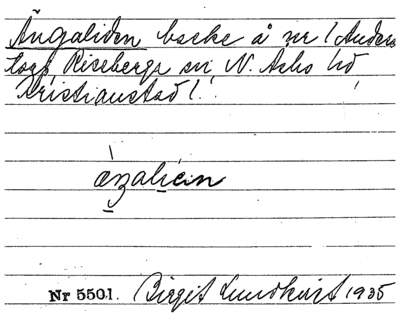 Ängaliden backe å nr 1 Anders
torp Riseberga sn N. Åsbo hd
Kristianstad l.
Nr 5501. Birgit Lundkvist 1935